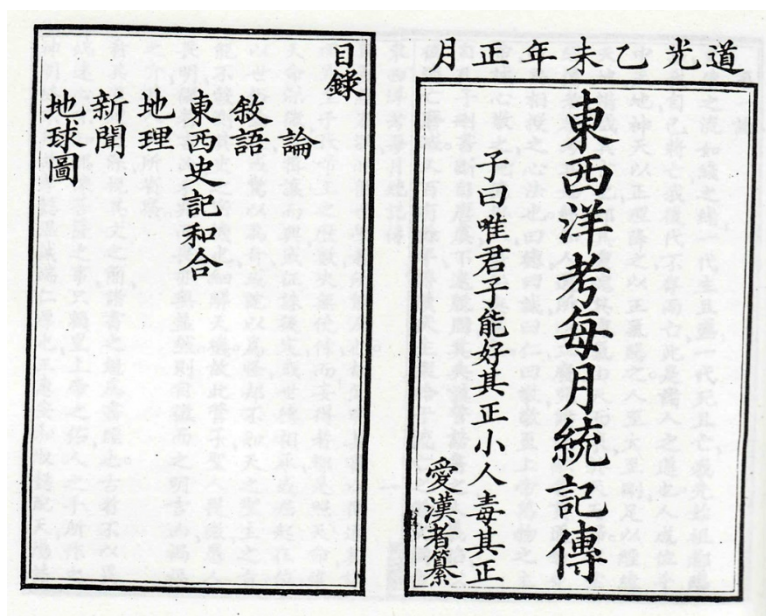 道光乙未年正月
東西洋考每月統記傳
子曰唯君子能好其正小人毒其正
愛漢者纂
目錄
論
敘語
東西史記和合
地理
新聞
地球圖